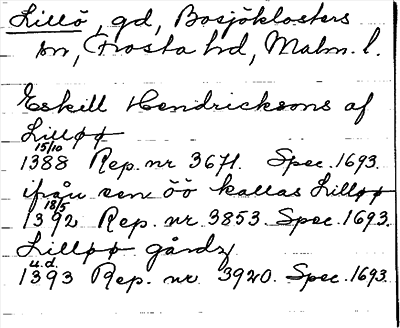 Lillö, gd, Bosjöklosters
sn, Frosta hd, Malm. l.
Eskill Hendricksons af
Lilløø
15/10
1388 Rep. nr 3671. Spec. 1693.
ifrån sen öö kallas Lilløø
18/5
1392 Rep. nr 3853. Spec. 1693.
Lilløø gårdz
u.d.
1393 Rep. nr 3920. Spec. 1693.